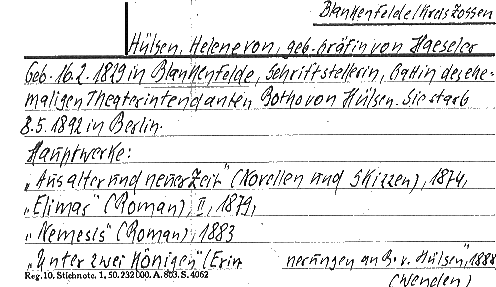 Blankenfelde/Kreis Zossen
Hülsen, Helene von, geb. Gräfin von Haeseler
Geb. 16.2.1829 in Blankenfelde, Schriftstellerin, Gattin des ehe-
maligen Theaterintendanten Botho von Hülsen. Sie starb
8.5.1892 in Berlin.
Hauptwerke:
„Aus alter und neuer Zeit" (Novellen und Skizzen), 1874,
„Elimas" (Roman), II, 1879,
„Nemesis" (Roman), 1883
„Unter zwei Königen" (Erin nerungen an B. v. Hülsen", 1888
Reg. 10. Stichnote. 1, 50. 232 000. A. 803. S. 4062
(wenden)